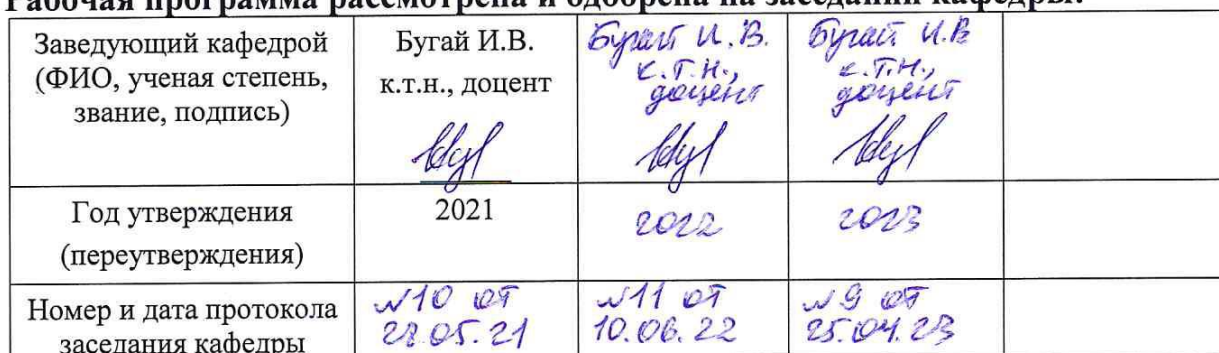 Рабочая программа рассмотрена и одобрена на заседании кафедры:
Заведующий кафедрой
(ФИО, ученая степень,
звание, подпись)
Бугай И.В.
к.т.н., доцент
Бугай И.В.
к.т.н.,
доцент
Бугай И.В
к.т.н.,
доцент
Год утверждения
(переутверждения)
2021
2022
2023
Номер и дата протокола
заседания кафедры
№10 от
№11 от
10.06.22
№9 от
25.04.23